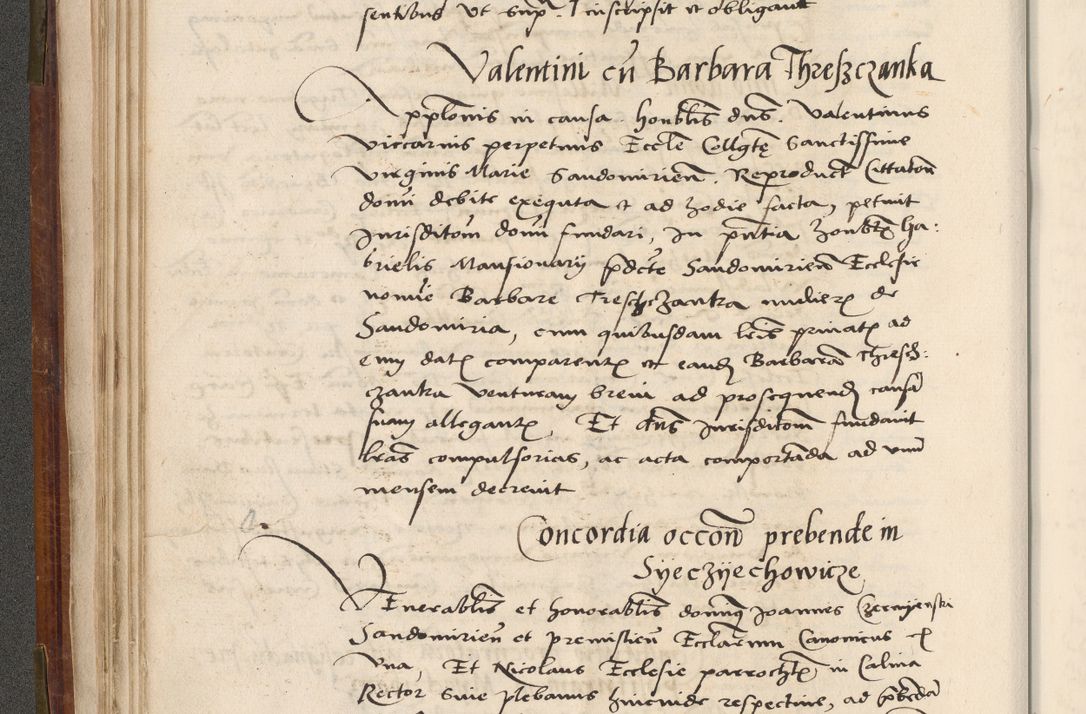 sentibus ut supra inscripsit et obligavit
Valentini cū Barbara Threszczanka
Applonis in causa honblis dns. Valentinus
viccarius perpetuus Eccle Collgtę Sanctissime
virginis Marie Sandomirien. Reproduct Cittaton
domi debite exequuta et ad hodie facta, petiuit
Jurisditom domi fundari, In pntia honblis Ga:
brielis Mansionarij pdcte Sandomirien Ecclesie
nomie Barbare Treschczanka mulieris de
Sandomiria, cum quibusdam lris privatis ad
eum datis comparentis et eandem Barbaram Thresch:
czanka venturam brevi ad prosequendum causā
suam allegantis, Et dns Jurisditom fundavit
lras compulsorias, ac acta comportāda ad vnū
mensem decrevit
Concordia occon prebende in
Syeczyechowicze
Venerablis et honorablis domini Joannes Czerniyenski
Sandomirien et premislien Ecclarum Canonicus
Vna Et Nicolaus Ecclesie parrochlis in Calina
Rector sive plebanus hincinde respective, ad